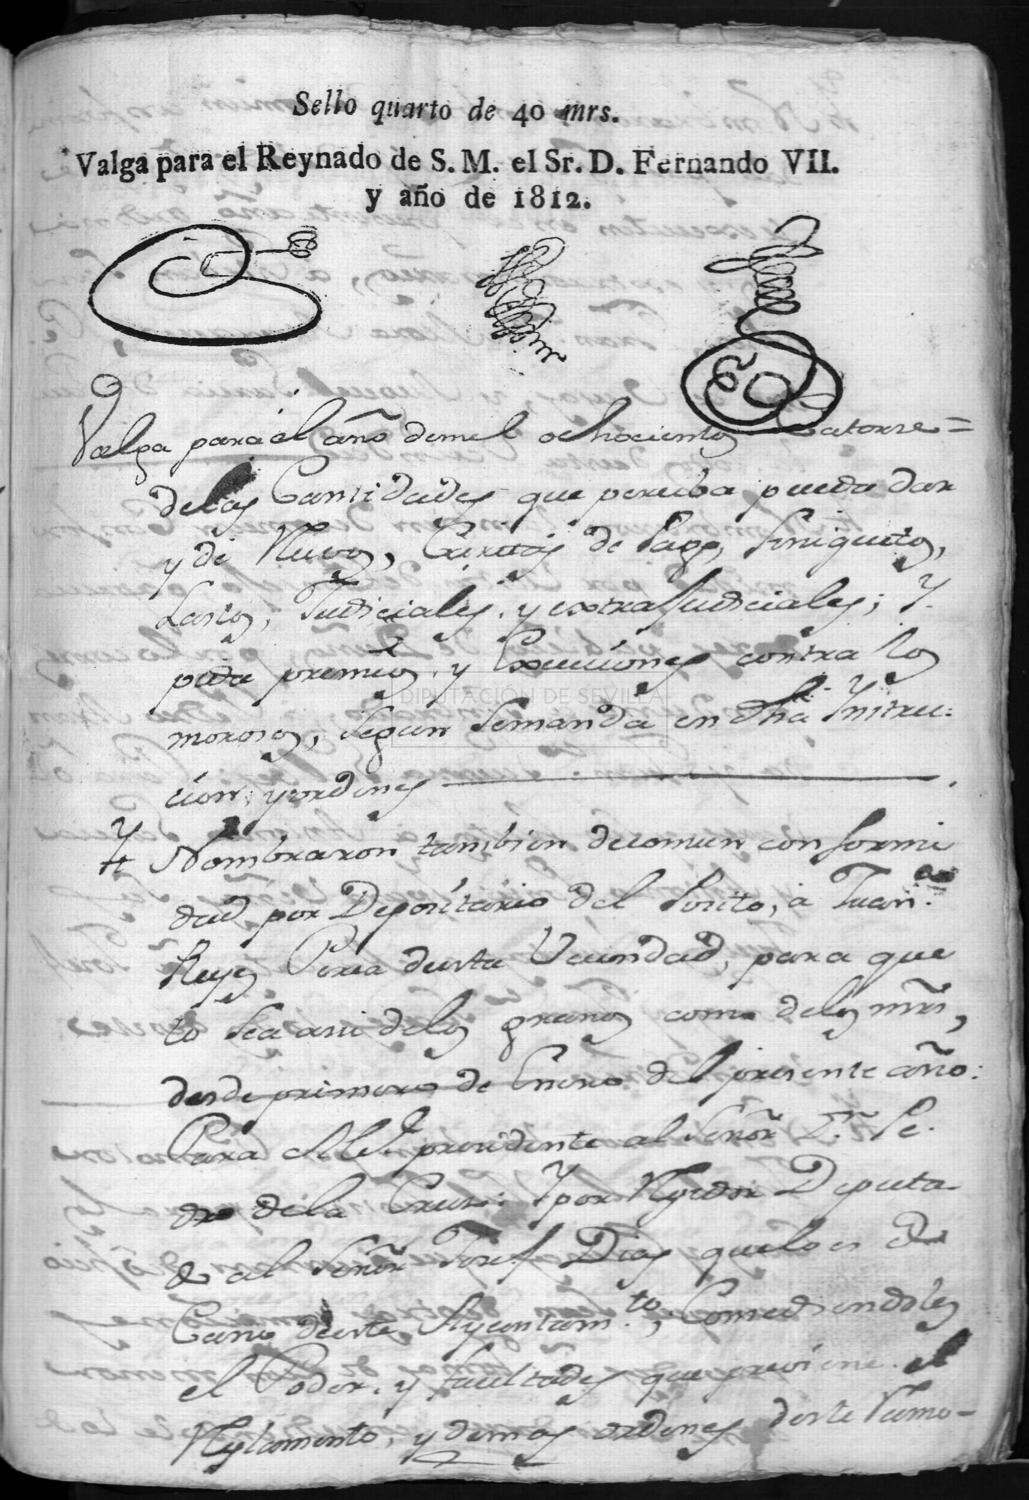 Sello quarto de 40 mrs.
Valga para el Reynado de S. M. el Sr. D. Fernando VII.
y año de 1812.
Valga para el año de mil ochocientos Catorse =
de las Cantidades que perciba pueda dar
y dé Recivos, Cartas de Pago, Finiquitos,
Lastos, Judiciales, y extraJudiciales; Y
pida premios, y Execuciones contra los
morosos, segun semanda en dha Ynstruc:
cion, y ordenes
Yt Nombraron tambien decomun conformi
dad por Depósitario del Posito, a Juan
Reyes Perea desta Vecindad, para que
lo sea asi delos granos como delos mrs,
desde primero de Enero del presente año:
Para el presidente al Señor Dn. Pe.
dro dela Cruz: Y por Rexidor Diputa
do al Señor Josef Dias quelo es De
Cano deeste Ayuntam.to, Comediendoles
el Poder, y facultades que previene el
Reglamento, y demas ordenes deste Ramo-
DIPUTACIÓN DE SEVILLA